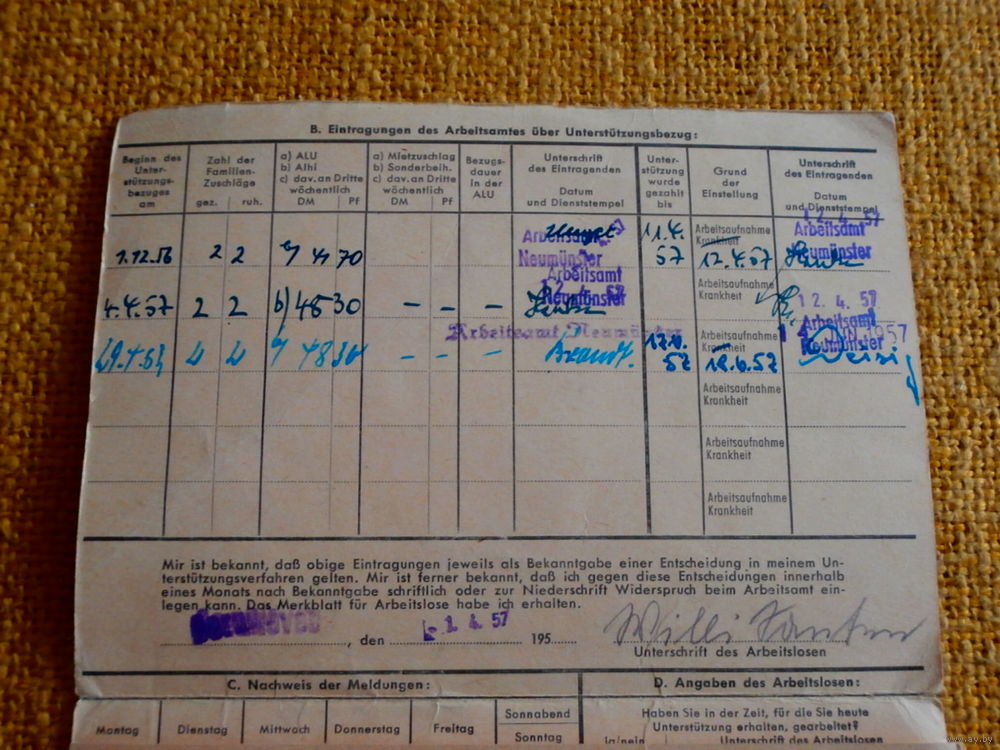 B. Eintragungen des Arbeitsamtes über Unterstützungsbezug:
Beginn des
Unter-
stützungs-
bezuges
am
Zahl der
Familien-
Zuschläge
gez. ruh.
a) ALU
b) Alhi
c) dav. an Dritte
wöchentlich
DM Pf
a) Mietzuschlag
b) Sonderbeih.
c) dav. an Dritte
wöchentlich
DM Pf
Bezugs-
dauer
in der
ALU
Unterschrift
des Eintragenden
Datum
und Dienststempel
Unter-
stützung
wurde
gezahlt
bis
Grund
der
Einstellung
Unterschrift
des Eintragenden
Datum
und Dienststempel
1.12.56 2 2 44 70
Arbeitsamt
Neumünster
11.4.
57
Arbeitsaufnahme
Krankheit
12.4.57
12.4.57
Arbeitsamt
Neumünster
4.4.57 2 2 b) 48 30 – – –
Arbeitsamt
12.4.57
Neumünster
Arbeitsaufnahme
Krankheit
12.4.57
Arbeitsamt
Neumünster
Arbeitsamt Neumünster
48 30 – – –
Brandt.
Arbeitsaufnahme
Krankheit
18.6.57
1957
Arbeitsaufnahme
Krankheit
Arbeitsaufnahme
Krankheit
Arbeitsaufnahme
Krankheit
Mir ist bekannt, daß obige Eintragungen jeweils als Bekanntgabe einer Entscheidung in meinem Un-
terstützungsverfahren gelten. Mir ist ferner bekannt, daß ich gegen diese Entscheidungen innerhalb
eines Monats nach Bekanntgabe schriftlich oder zur Niederschrift Widerspruch beim Arbeitsamt ein-
legen kann. Das Merkblatt für Arbeitslose habe ich erhalten.
, den 4. 57 195
Willi
Unterschrift des Arbeitslosen
C. Nachweis der Meldungen:
Montag Dienstag Mittwoch Donnerstag Freitag Sonnabend
Sonntag
D. Angaben des Arbeitslosen:
Haben Sie in der Zeit, für die Sie heute
Unterstützung erhalten, gearbeitet?
ja/nein Unterschrift des Arbeitslosen
www.ay.by